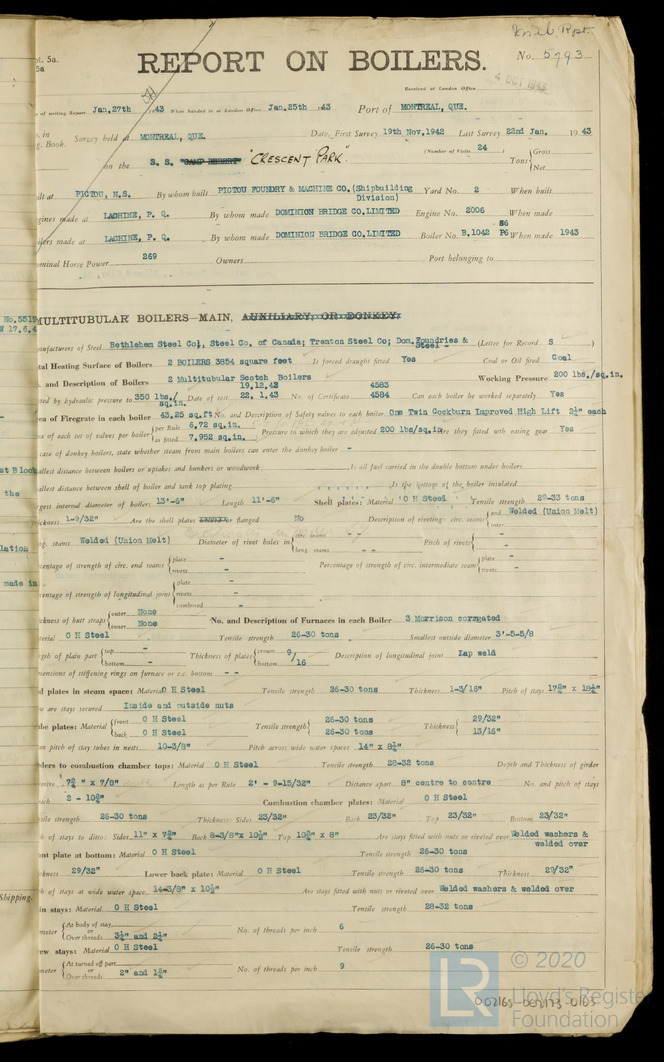 REPORT ON BOILERS.
No. 5793
Received at London Office
4 OCT 1943
of writing Report Jan. 27th 43 When handed in at London Office Jan. 25th 43 Port of MONTREAL, QUE.
Book. Survey held at MONTREAL, QUE. Date, First Survey 19th Nov. 1942 Last Survey 22nd Jan. 1943
(Number of Visits 24
on the S. S. "CRESCENT PARK" Tons { Gross Net
ilt at PICTOU, N.S. By whom built PICTOU FOUNDRY & MACHINE CO. (Shipbuilding Division) Yard No. 2 When built
gines made at LACHINE, P. Q. By whom made DOMINION BRIDGE CO. LIMITED Engine No. 2006 When made
ilers made at LACHINE, P. Q. By whom made DOMINION BRIDGE CO. LIMITED Boiler No. B.1042 86 P6 When made 1943
ominal Horse Power 269 Owners Port belonging to
MULTITUBULAR BOILERS—MAIN, AUXILIARY, OR DONKEY.
anufacturers of Steel Bethlehem Steel Co., Steel Co. of Canada; Trenton Steel Co; Dom. Foundries & Steel (Letter for Record S )
tal Heating Surface of Boilers 2 BOILERS 3854 square feet Is forced draught fitted Yes Coal or Oil fired Coal
. and Description of Boilers 2 Multitubular Scotch Boilers Working Pressure 200 lbs./sq.in.
ted by hydraulic pressure to 350 lbs./sq.in. Date of test 19.12.42 22. 1.43 No. of Certificate 4583 4584 Can each boiler be worked separately Yes
rea of Firegrate in each boiler 43.25 sq.ft No. and Description of Safety valves to each boiler One Twin Cockburn Improved High Lift 2½" each
ea of each set of valves per boiler { per Rule 6.72 sq.in. as fitted 7.952 sq.in. Pressure to which they are adjusted 200 lbs/sq.in Are they fitted with easing gear Yes
case of donkey boilers, state whether steam from main boilers can enter the donkey boiler -
allest distance between boilers or uptakes and bunkers or woodwork Is oil fuel carried in the double bottom under boilers
allest distance between shell of boiler and tank top plating Is the bottom of the boiler insulated
rgest internal diameter of boilers 13'-6" Length 11'-6" Shell plates: Material O H Steel Tensile strength 29-33 tons
ickness 1-9/32" Are the shell plates welded or flanged No Description of riveting: circ. seams { end Welded (Union Melt) inter.
ng. seams Welded (Union Melt) Diameter of rivet holes in { circ. seams - - long. seams - - Pitch of rivets { - -
centage of strength of circ. end seams { plate - rivets - Percentage of strength of circ. intermediate seam { plate - rivets -
centage of strength of longitudinal joint { plate - rivets - combined -
ckness of butt straps { outer None inner None No. and Description of Furnaces in each Boiler 3 Morrison corrugated
terial O H Steel Tensile strength 26-30 tons Smallest outside diameter 3'-5-5/8
ngth of plain part { top - bottom - Thickness of plates { crown bottom 9/16 Description of longitudinal joint Lap weld
mensions of stiffening rings on furnace or c.c. bottom - -
d plates in steam space: Material O H Steel Tensile strength 26-30 tons Thickness 1-3/16" Pitch of stays
w are stays secured Inside and outside nuts
be plates: Material { front O H Steel back O H Steel Tensile strength { 26-30 tons 26-30 tons Thickness { 29/32" 13/16"
an pitch of stay tubes in nests 10-3/8" Pitch across wide water spaces 14" x 8½"
ders to combustion chamber tops: Material O H Steel Tensile strength 28-32 tons Depth and Thickness of girder
centre 7¾" x 7/8" Length as per Rule 2' - 9-15/32" Distance apart 8" centre to centre No. and pitch of stays
ach 2 - 10¾" Combustion chamber plates: Material O H Steel
sile strength 26-30 tons Thickness: Sides 23/32" Back 23/32" Top 23/32" Bottom 23/32"
h of stays to ditto: Sides 11" x 7¾" Back Top 10¾" x 8" Are stays fitted with nuts or riveted over Welded washers & welded over
nt plate at bottom: Material O H Steel Tensile strength 26-30 tons
kness 29/32" Lower back plate: Material O H Steel Tensile strength 26-30 tons Thickness 29/32"
h of stays at wide water space 14-3/8" x 10½" Are stays fitted with nuts or riveted over Welded washers & welded over
in stays: Material O H Steel Tensile strength 28-32 tons
meter { At body of stay or Over threads 3¼" and 2½" No. of threads per inch 6
ew stays: Material O H Steel Tensile strength 26-30 tons
meter { At turned off part or Over threads 2" and 1¾" No. of threads per inch 9
© 2020
Lloyd's Register
Foundation
002165-002173-0163